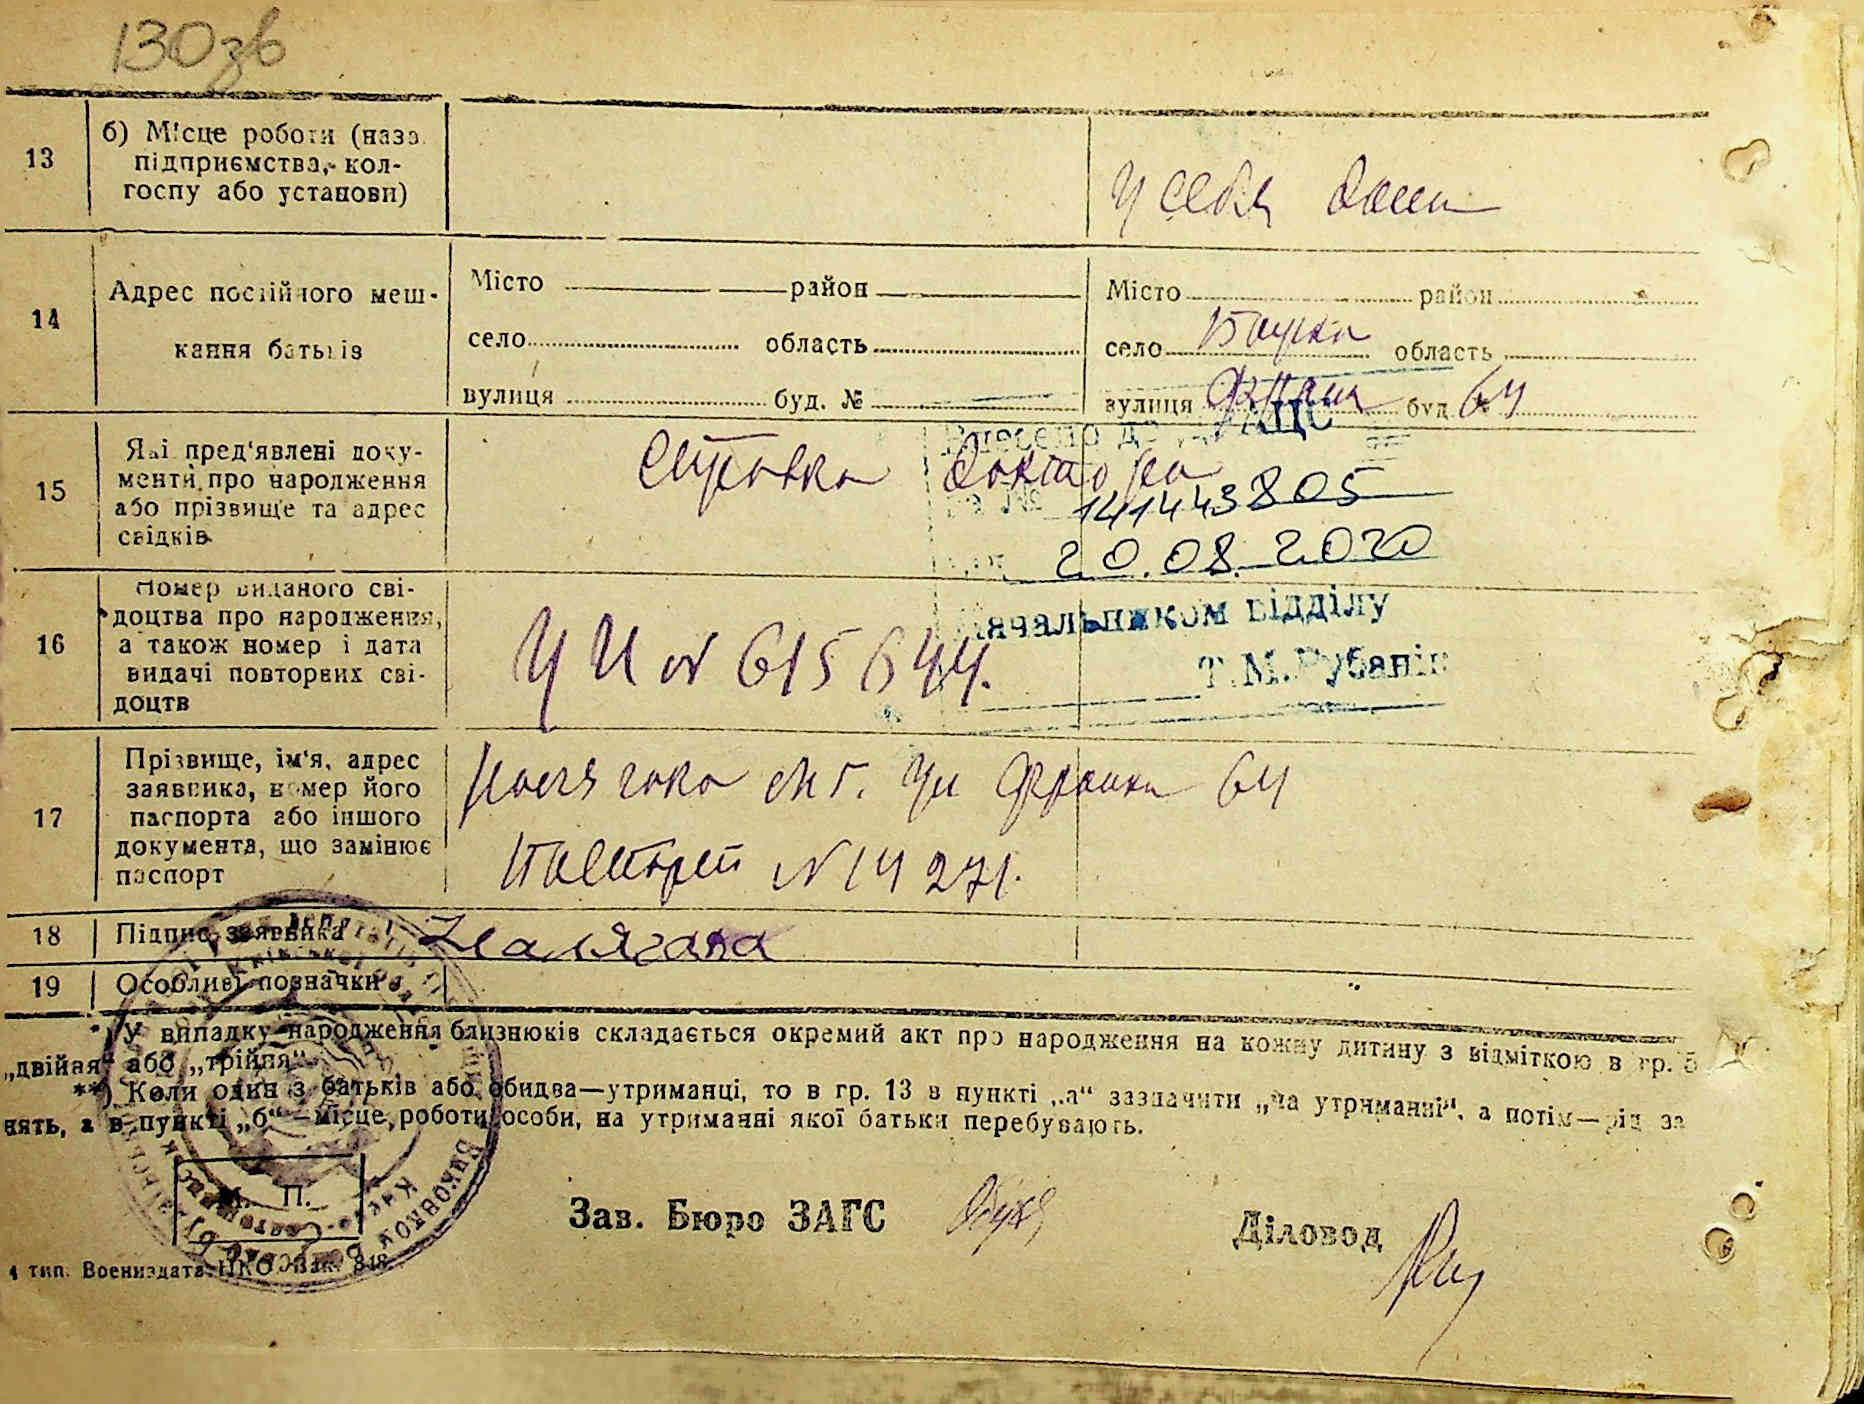 130зв
13
б) Місце роботи (назв.
підприємства, кол-
госпу або установи)
у себя дома
14
Адрес постійного меш-
кання батьків
Місто район
село область
вулиця буд. №
Місто район
село Бучка область
вулиця Франка буд 64
15
Які пред'явлені доку-
менти про народження
або прізвище та адрес
свідків
Справка доктора
Внесено до ДРАЦС
за № 141443805
20.08.2020
Начальником відділу
Т.М.Рубанік
16
Номер виданого сві-
доцтва про народження,
а також номер і дата
видачі повторних сві-
доцтв
УИ № 615644.
17
Прізвище, ім'я, адрес
заявника, номер його
паспорта або іншого
документа, що замінює
паспорт
М.Г. Ул Франка 64
Паспорт № 14271.
18
Підпис заявника
19
Особливі позначки
*) У випадку народження близнюків складається окремий акт про народження на кожну дитину з відміткою в гр. 5
„двійня" або „трійня".
**) Коли один з батьків або обидва—утриманці, то в гр. 13 в пункті „а" зазначити „на утриманні", а потім—рід за
нять, а в пункті „б"—місце роботи особи, на утриманні якої батьки перебувають.
М. П.
Зав. Бюро ЗАГС
Діловод
4 тип. Воениздата НКО Зак. 848